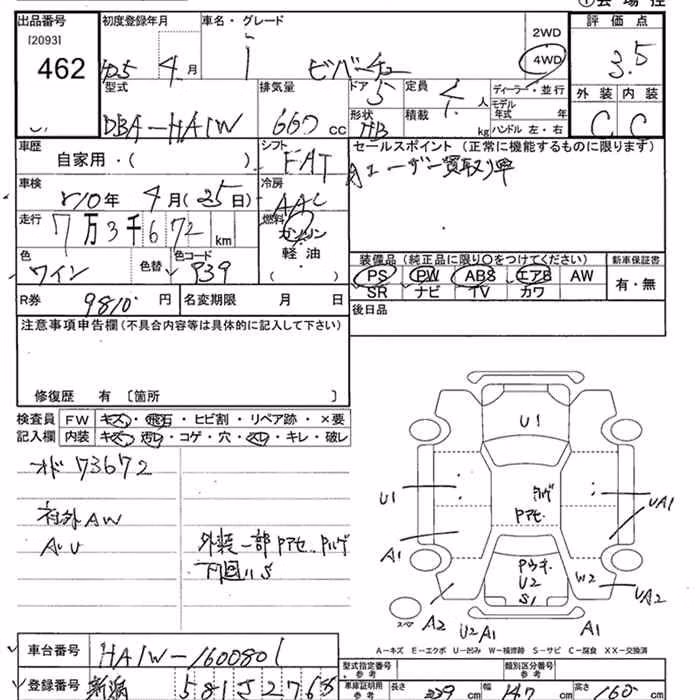 出品番号 初度登録年月 車名・グレード 2WD 評価点
[2093] 4WD 3.5
462 4月 i ビバーチェ 外装 内装
C C
型式 排気量 ドア 定員 ディーラー・並行
DBA-HA1W 660cc 5 人 モデル年式 年
形状 積載 kg ハンドル 左・右
HB
車歴 シフト セールスポイント(正常に機能するものに限ります)
自家用・( ) FAT ユーザー買取り車
車検 R10年 4月(25日) 冷房 AAC
走行 7万3千672km 燃料 ガソリン
軽油
( )
色 ワイン 色替 色コード P39
装備品(純正品に限り○をつけてください) 新車保証書
PS PW ABS エアB AW 有・無
SR ナビ TV カワ
R券 9810円 名変期限 月 日
後日品
注意事項申告欄(不具合内容等は具体的に記入して下さい)
修復歴 有 [箇所 ]
検査員 FW キズ・飛石・ヒビ割・リペア跡・×要
記入欄 内装 キズ・汚レ・コゲ・穴・スレ・キレ・破レ
オド 73672
社外AW
AU
外装一部Pアセ、Pハゲ
下回りS
U1
U1 Pハゲ UA1
Pアセ
A1 Pウキ
U2 W2
S1 UA2
A2 U2 A1 A1
スペア
A-キズ E-エクボ U-凹み W-補修跡 S-サビ C-腐食 XX-交換済
車台番号 HA1W-1600801
登録番号 新潟 581 さ 2768
型式指定番号 参考 類別区分番号 参考
車庫証明用 参考 長さ 339 cm 幅 147 cm 高さ 160 cm